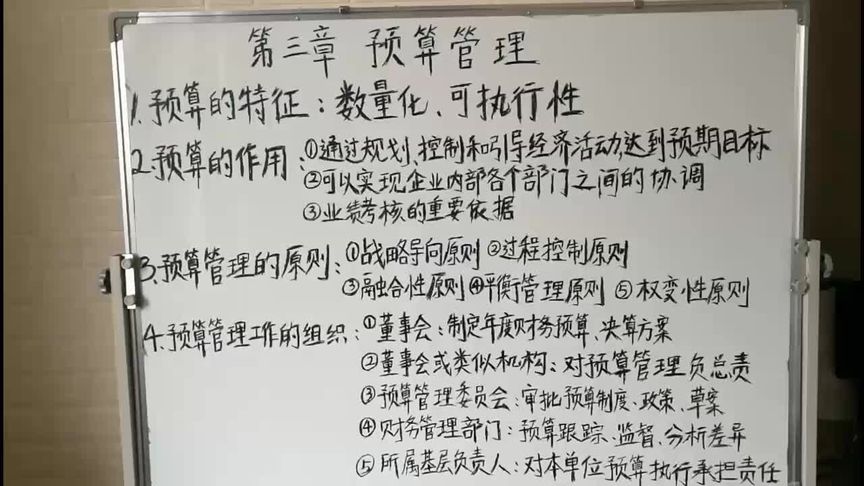 第三章 预算管理
1.预算的特征：数量化、可执行性
2.预算的作用：①通过规划、控制和引导经济活动,达到预期目标
②可以实现企业内部各个部门之间的协调
③业绩考核的重要依据
3.预算管理的原则：①战略导向原则 ②过程控制原则
③融合性原则 ④平衡管理原则 ⑤权变性原则
4.预算管理工作的组织：①董事会：制定年度财务预算、决算方案
②董事会或类似机构：对预算管理负总责
③预算管理委员会：审批预算制度、政策、草案
④财务管理部门：预算跟踪、监督、分析差异
⑤所属基层负责人：对本单位预算执行承担责任